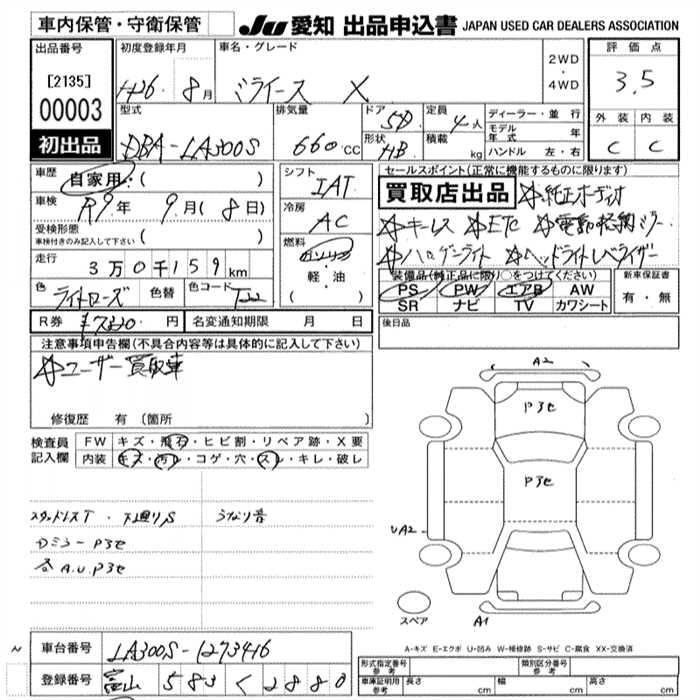 車内保管・守衛保管
JU 愛知 出品申込書 JAPAN USED CAR DEALERS ASSOCIATION
出品番号
[2135]
00003
初出品
初度登録年月
H26. 8月
車名・グレード
ミライース X
2WD
・
4WD
評価点
3.5
外装 内装
C C
型式
DBA-LA300S
排気量
660 CC
ドア 5D
形状 HB
定員 4人
積載 kg
ディーラー・並行
モデル年式 年
ハンドル 左・右
車歴 自家用:( )
車検 R9年 9月(8日)
受検形態
車検付きのみ記入して下さい ( )
走行 3万0千159km
色 ライトローズ 色替 色コード T22
シフト IAT
冷房 AC
燃料
ガソリン
軽・油
( )
セールスポイント(正常に機能するものに限ります)
買取店出品 純正オーディオ
キーレス ETC 電動格納ミラー
ハロゲンライト ヘッドライトレベライザー
装備品(純正品に限り○をつけてください)
PS PW エアB AW
SR ナビ TV カワシート
新車保証書
有・無
R券 ¥7330円 名変通知期限 月 日
後日品
注意事項申告欄(不具合内容等は具体的に記入して下さい)
ユーザー買取車
修復歴 有 〔箇所
検査員記入欄
FW キズ・飛石・ヒビ割・リペア跡・X要
内装 キズ・汚レ・コゲ・穴・スレ・キレ・破レ
スタッドレスT・下廻りS うなり音
Dミラー P3e
各A.U.P3e
A2
P3e
P3e
UA2
スペア
A1
A-キズ E-エクボ U-凹み W-補修跡 S-サビ C-腐食 XX-交換済
~
車台番号 LA300S-1273416
登録番号 富山 583 く 2880
形式指定番号 参考
類別区分番号 参考
車庫証明用 参考 長さ cm 幅 cm 高さ cm